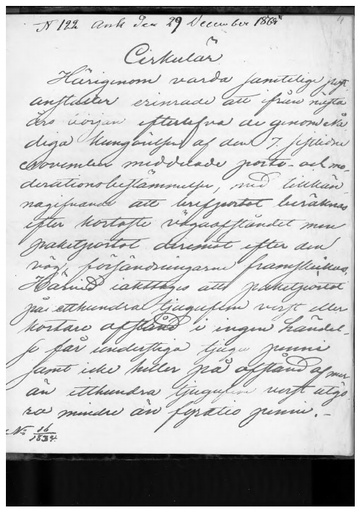 N 122 Ank den 29 December 1865
Cirkulär
Härigenom varda samtelige post
anstalter erinrade att från nästa
års början efterlefva de genom Nå
diga Kungörelsen af den 7 sistledne
November meddelade porto- och mo
derationsbestämmelser, med tillkän
nagifvande att brefportot beräknas
efter kortaste vägaafståndet men
paketportot deremot efter den
väg försändningarne framskickas.
Härvid iakttages att paketportot
på etthundra tjugufem verst eller
kortare afstånd i ingen händel
se får understiga tjugu penni
samt icke heller på afstånd af mer
än etthundra tjugufem verst utgö
ra mindre än fyratio penni.
No 16/1834